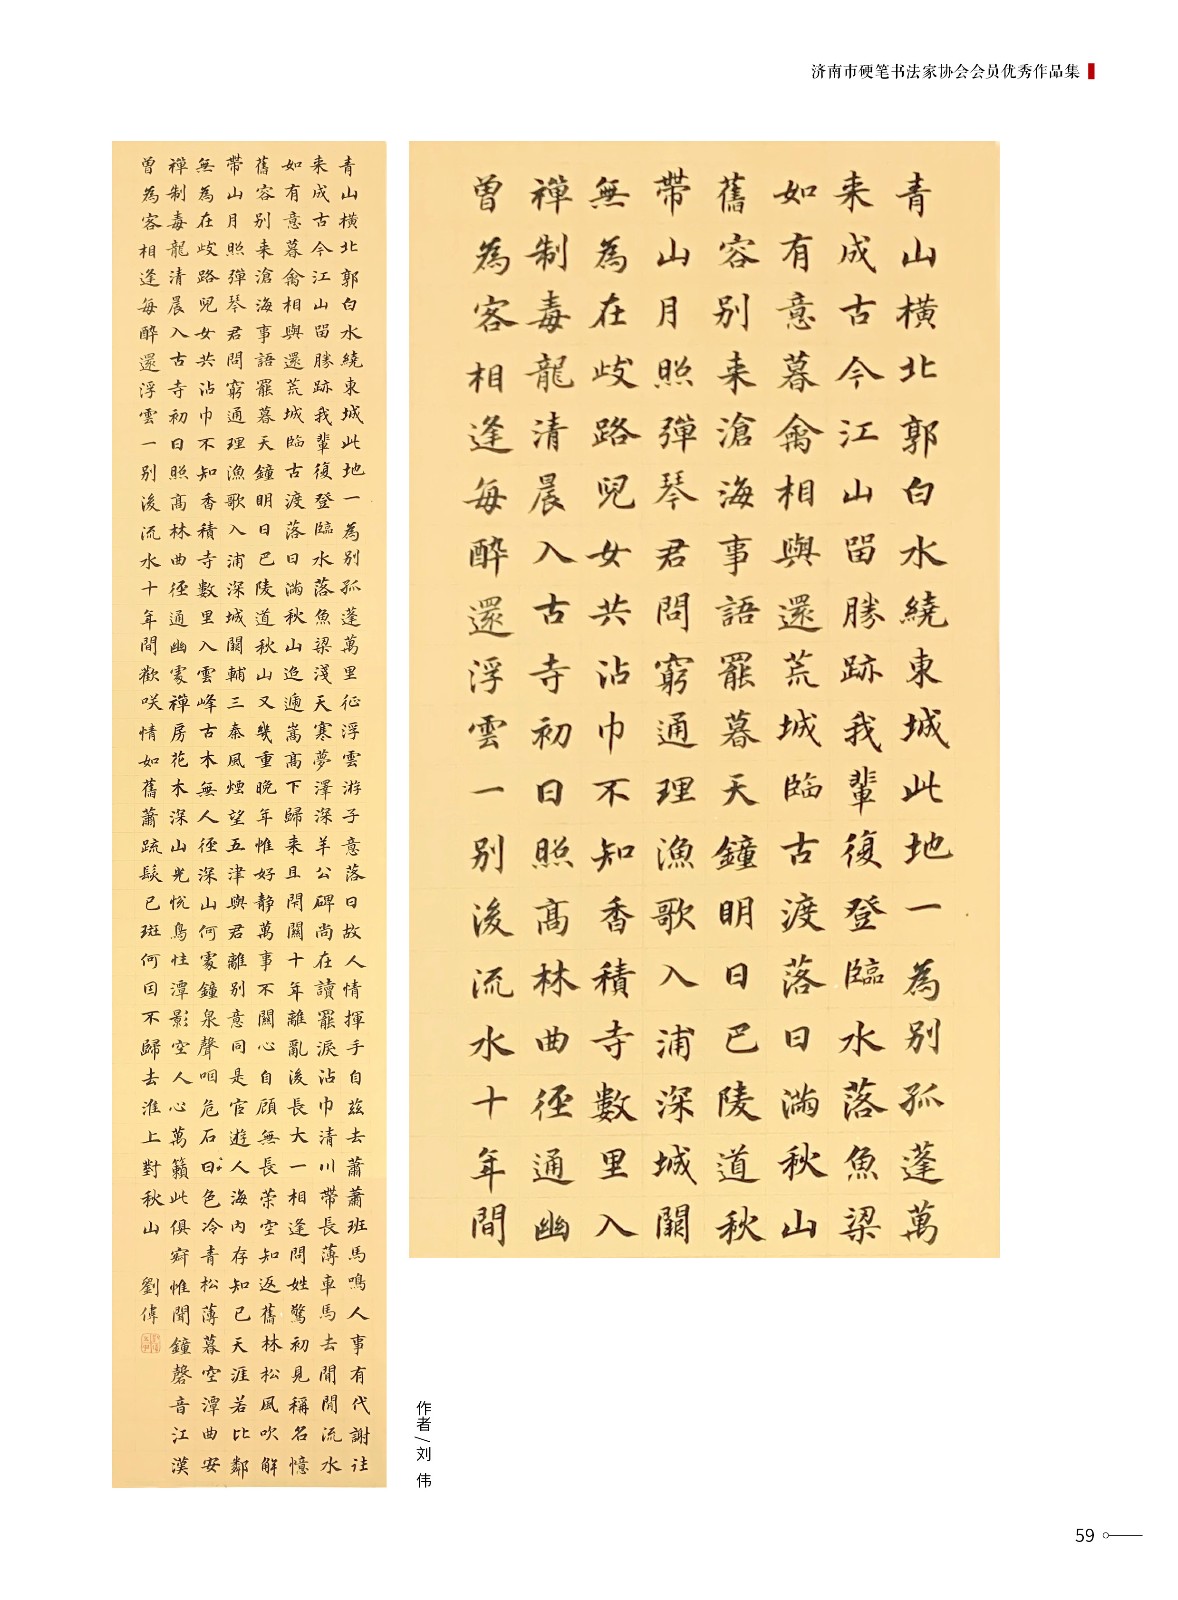 济南市硬笔书法家协会会员优秀作品集
青山橫北郭白水繞東城此地一為別孤蓬萬里征浮雲游子意落日故人情揮手自茲去蕭蕭班馬鳴人事有代謝往
来成古今江山留勝跡我輩復登臨水落魚梁淺天寒夢澤深羊公碑尚在讀罷淚沾巾清川帶長薄車馬去閒閒流水
如有意暮禽相與還荒城臨古渡落日滿秋山迢遞嵩高下歸来且閉關十年離亂後長大一相逢問姓驚初見稱名憶
舊容別来滄海事語罷暮天鐘明日巴陵道秋山又幾重晚年惟好静萬事不關心自顧無長策空知返舊林松風吹解
帶山月照彈琴君問窮通理漁歌入浦深城闕輔三秦風煙望五津與君離別意同是宦遊人海內存知己天涯若比鄰
無為在歧路兒女共沾巾不知香積寺數里入雲峰古木無人徑深山何處鐘泉聲咽危石日色冷青松薄暮空潭曲安
禪制毒龍清晨入古寺初日照高林曲徑通幽處禪房花木深山光悅鳥性潭影空人心萬籟此俱寂惟聞鐘磬音江漢
曾為客相逢每醉還浮雲一別後流水十年間歡咲情如舊蕭疏鬢已斑何因不歸去淮上對秋山 劉偉
青山橫北郭白水繞東城此地一為別孤蓬萬
来成古今江山留勝跡我輩復登臨水落魚梁
如有意暮禽相與還荒城臨古渡落日滿秋山
舊容別来滄海事語罷暮天鐘明日巴陵道秋
帶山月照彈琴君問窮通理漁歌入浦深城闕
無為在歧路兒女共沾巾不知香積寺數里入
禪制毒龍清晨入古寺初日照高林曲徑通幽
曾為客相逢每醉還浮雲一別後流水十年間
作者/刘 伟
59